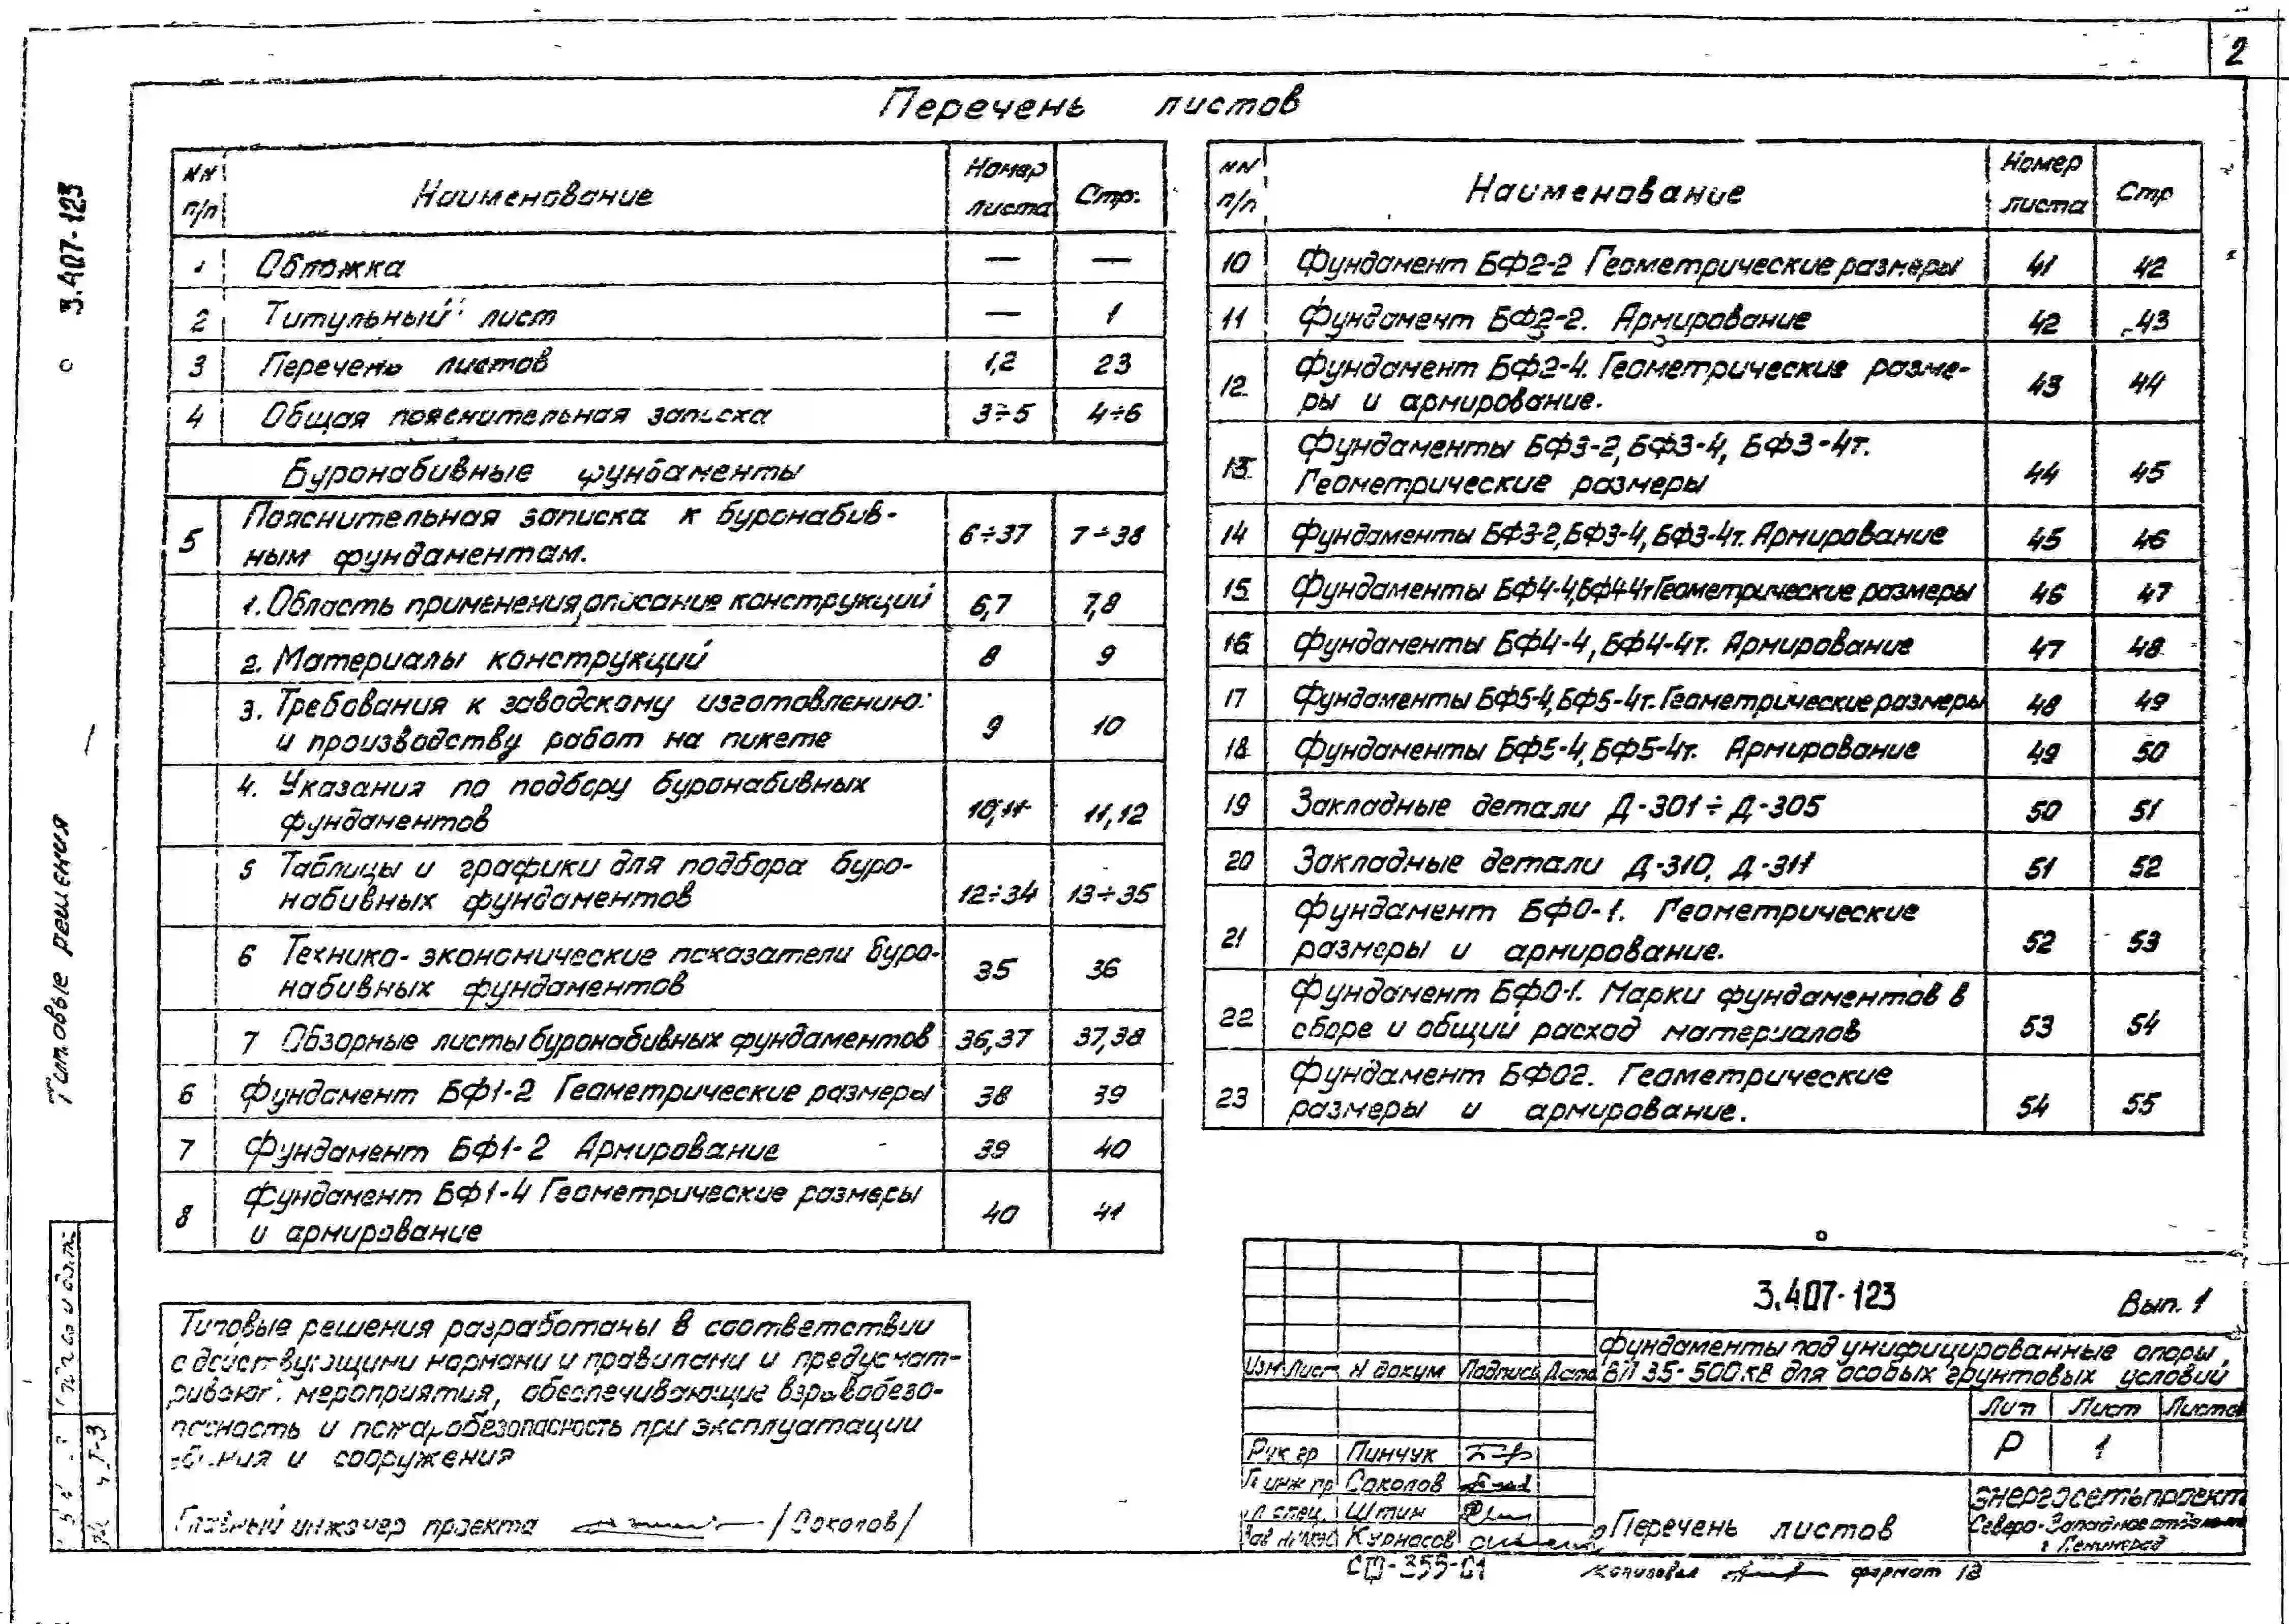 2
Перечень листов
NN п/п Наименование Номер листа Стр.
1 Обложка — —
2 Титульный лист — 1
3 Перечень листов 1,2 23
4 Общая пояснительная записка 3÷5 4÷6
Буронабивные фундаменты
5 Пояснительная записка к буронабив-
ным фундаментам. 6÷37 7÷38
1. Область применения, описание конструкций 6,7 7,8
2. Материалы конструкций 8 9
3. Требования к заводскому изготовлению
и производству работ на пикете 9 10
4. Указания по подбору буронабивных
фундаментов 10,11 11,12
5 Таблицы и графики для подбора буро-
набивных фундаментов 12÷34 13÷35
6 Технико-экономические показатели буро-
набивных фундаментов 35 36
7 Обзорные листы буронабивных фундаментов 36,37 37,38
6 Фундамент БФ1-2 Геометрические размеры 38 39
7 Фундамент БФ1-2 Армирование 39 40
8 Фундамент БФ1-4 Геометрические размеры
и армирование 40 41
NN п/п Наименование Номер листа Стр
10 Фундамент БФ2-2 Геометрические размеры 41 42
11 Фундамент БФ2-2. Армирование 42 43
12 Фундамент БФ2-4. Геометрические разме-
ры и армирование. 43 44
13 Фундаменты БФ3-2, БФ3-4, БФ3-4т.
Геометрические размеры 44 45
14 Фундаменты БФ3-2, БФ3-4, БФ3-4т. Армирование 45 46
15 Фундаменты БФ4-4, БФ4-4т Геометрические размеры 46 47
16 Фундаменты БФ4-4, БФ4-4т. Армирование 47 48
17 Фундаменты БФ5-4, БФ5-4т. Геометрические размеры 48 49
18 Фундаменты БФ5-4, БФ5-4т. Армирование 49 50
19 Закладные детали Д-301÷Д-305 50 51
20 Закладные детали Д-310, Д-311 51 52
21 Фундамент БФ0-1. Геометрические
размеры и армирование. 52 53
22 Фундамент БФ0-1. Марки фундаментов в
сборе и общий расход материалов 53 54
23 Фундамент БФ02. Геометрические
размеры и армирование. 54 55
Типовые решения 3.407-123
Типовые решения разработаны в соответствии
с действующими нормами и правилами и предусмат-
ривают мероприятия, обеспечивающие взрывобезо-
пасность и пожаробезопасность при эксплуатации
и сооружения
Главный инженер проекта /Соколов/
3.407-123 Вып. 1
Фундаменты под унифицированные опоры
ВЛ 35-500 кВ для особых грунтовых условий
Изм Лист N докум Подпись Дата
Лит Лист Листов
Р 1
Рук гр Пинчук
Гл инж пр Соколов
Гл спец. Штин
Зав Курносов
Перечень листов
Энергосетьпроект
Северо-Западное отделение
г Ленинград
Копировал формат 12